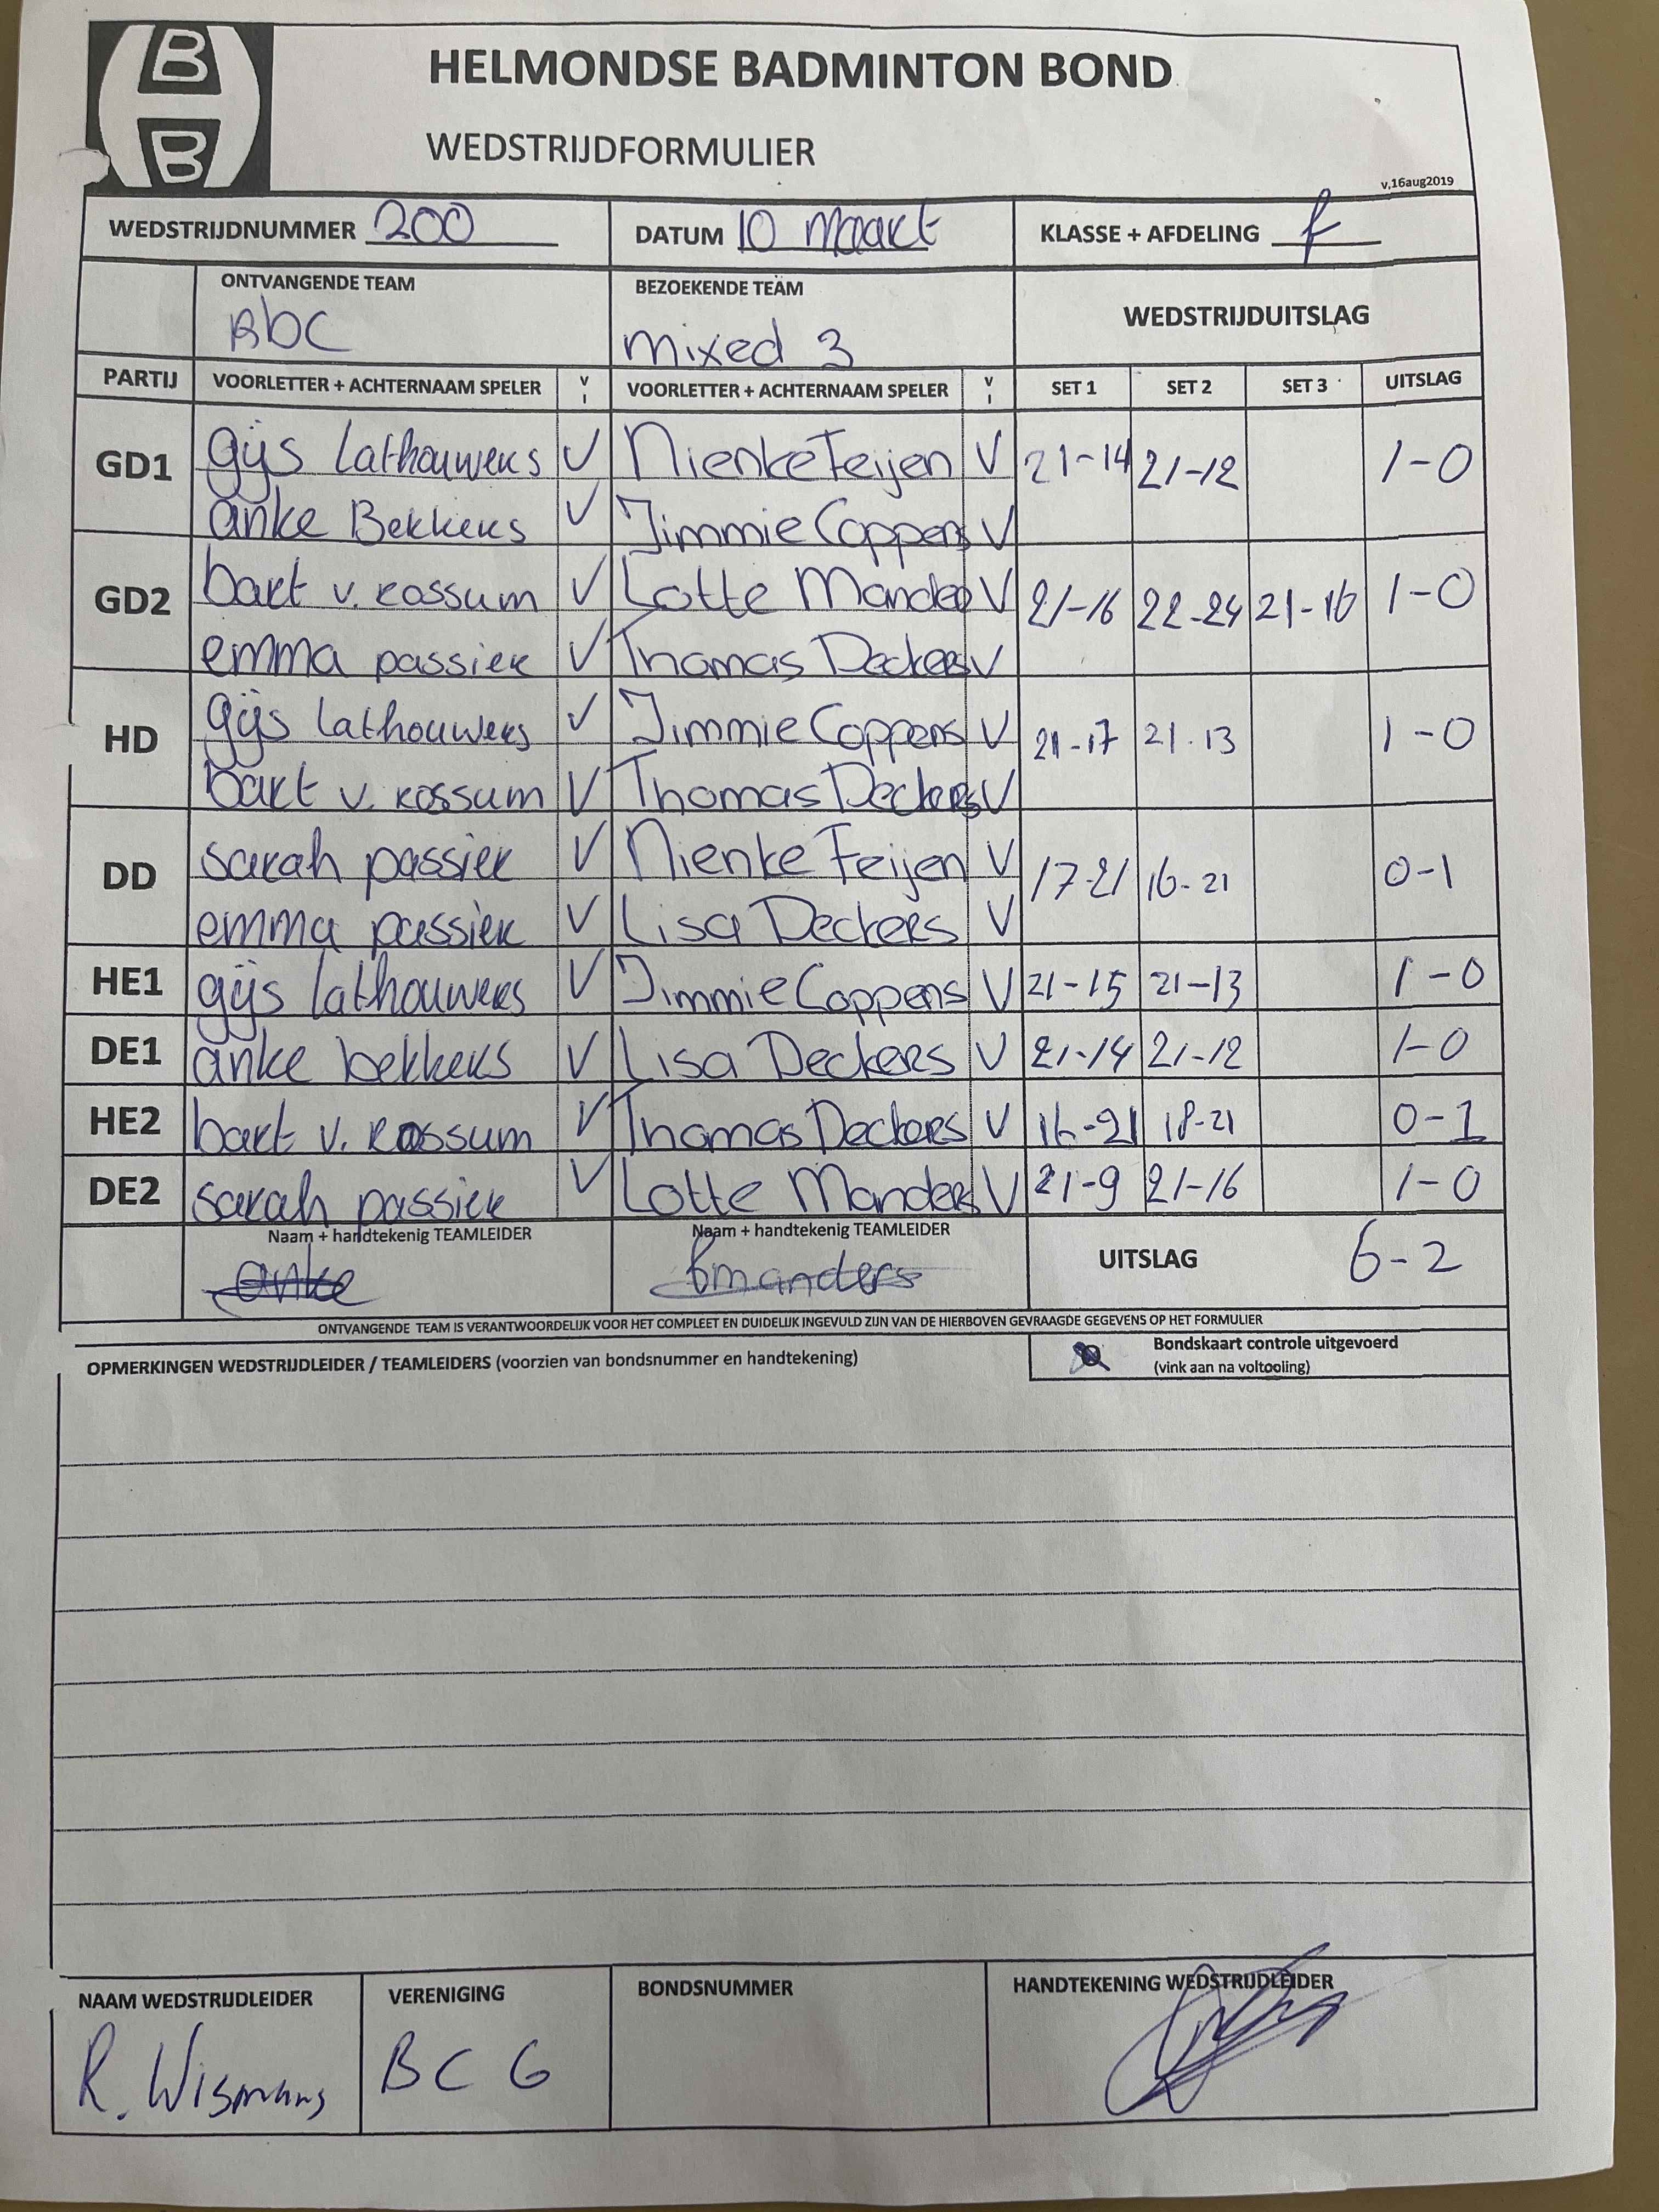 B
B
HELMONDSE BADMINTON BOND
WEDSTRIJDFORMULIER
v.16aug2019
WEDSTRIJDNUMMER 200 DATUM 10 maart KLASSE + AFDELING f
ONTVANGENDE TEAM BEZOEKENDE TEAM WEDSTRIJDUITSLAG
BbC mixed 3
PARTIJ VOORLETTER + ACHTERNAAM SPELER V I VOORLETTER + ACHTERNAAM SPELER V I SET 1 SET 2 SET 3 UITSLAG
GD1 gijs Lathouwers V Nienke Feijen V 21-14 21-12 1-0
anke Bekkers V Jimmie Coppens V
GD2 bart v. rossum V Lotte Manders V 21-16 22-24 21-16 1-0
emma passier V Thomas Deckers V
HD gijs lathouwers V Jimmie Coppens V 21-17 21-13 1-0
bart v. rossum V Thomas Deckers V
DD sarah passier V Nienke Feijen V 17-21 16-21 0-1
emma passier V Lisa Deckers V
HE1 gijs lathouwers V Jimmie Coppens V 21-15 21-13 1-0
DE1 anke bekkers V Lisa Deckers V 21-14 21-12 1-0
HE2 bart v. Rossum V Thomas Deckers V 16-21 18-21 0-1
DE2 sarah passier V Lotte Manders V 21-9 21-16 1-0
Naam + handtekenig TEAMLEIDER Naam + handtekenig TEAMLEIDER UITSLAG 6-2
anke manders
ONTVANGENDE TEAM IS VERANTWOORDELIJK VOOR HET COMPLEET EN DUIDELIJK INGEVULD ZIJN VAN DE HIERBOVEN GEVRAAGDE GEGEVENS OP HET FORMULIER
OPMERKINGEN WEDSTRIJDLEIDER / TEAMLEIDERS (voorzien van bondsnummer en handtekening) Bondskaart controle uitgevoerd
(vink aan na voltooiing)
NAAM WEDSTRIJDLEIDER VERENIGING BONDSNUMMER HANDTEKENING WEDSTRIJDLEIDER
R. Wismans BCG